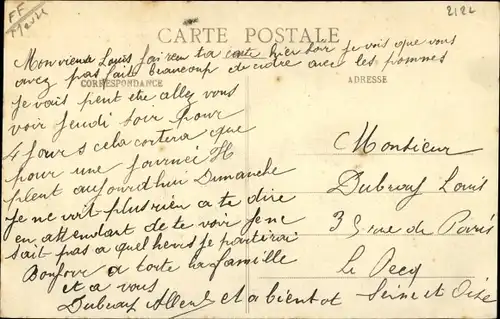 2122
CARTE POSTALE
Mon vieux Louis j'ai reçu ta carte hier soir je vois que vous
avez pas fait beaucoup de cidre avec les pommes
CORRESPONDANCE
ADRESSE
je vais peut etre allez vous
voir jeudi soir pour
4 jours cela
pour une
pleut aujourd'hui Dimanche
je ne voit plus rien a te dire
en attendant de te voir je ne
sait pas a quel heure je partirai
Bonjour a toute la famille
et a vous
Dubrouf et a bientot
Monsieur
Dubrouf Louis
35 rue de Paris
Le Pecq
Seine et Oise